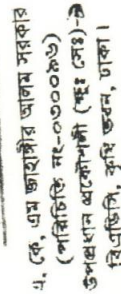 এ, কে, এম জাহাঙ্গীর আলম সরকার
(পরিচিতি নং-০৩০০৯৬)
উপপ্রধান প্রকৌশলী (ক্ষুঃ সেঃ)-১
বিএডিসি, কৃষি ভবন, ঢাকা।